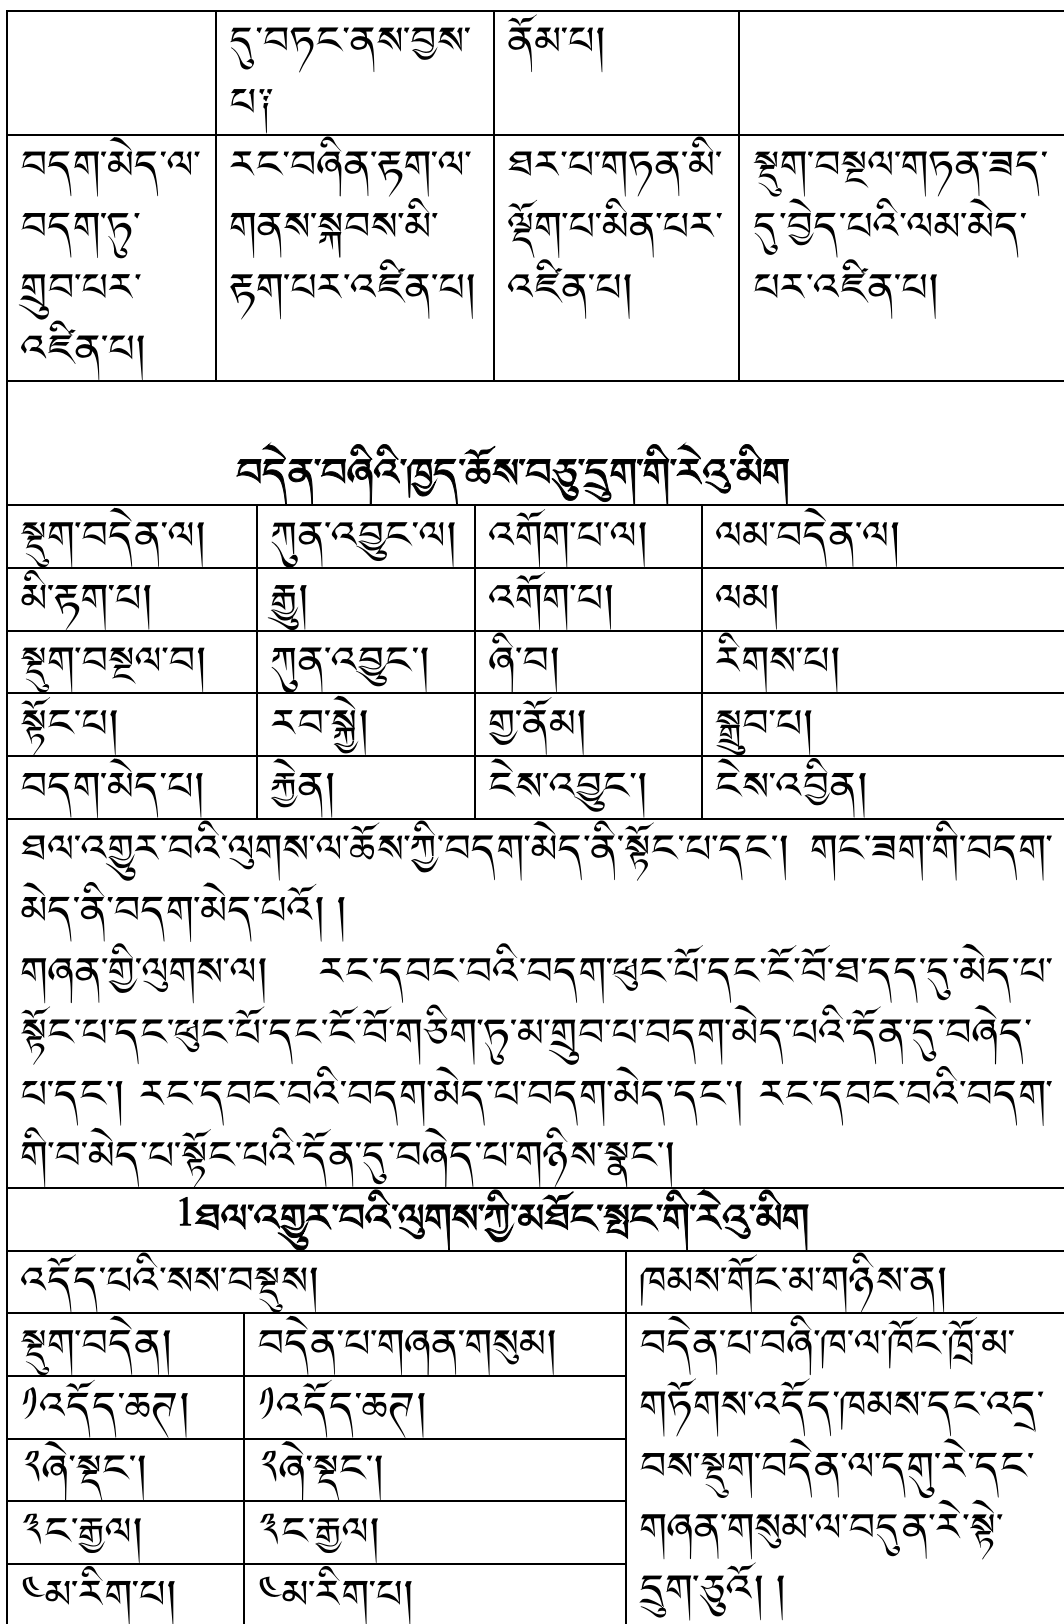 དུ་བཏང་ནས་བྱས་
པ༑
ནོམ་པ།
བདག་མེད་ལ་
བདག་ཏུ་
གྲུབ་པར་
འཛིན་པ།
རང་བཞིན་རྟག་ལ་
གནས་སྐབས་མི་
རྟག་པར་འཛིན་པ།
ཐར་པ་གཏན་མི་
ལྡོག་པ་མིན་པར་
འཛིན་པ།
སྡུག་བསྔལ་གཏན་ཟད་
དུ་བྱེད་པའི་ལམ་མེད་
པར་འཛིན་པ།
བདེན་བཞིའི་ཁྱད་ཆོས་བཅུ་དྲུག་གི་རེའུ་མིག
སྡུག་བདེན་ལ། ཀུན་འབྱུང་ལ། འགོག་པ་ལ། ལམ་བདེན་ལ།
མི་རྟག་པ། རྒྱུ། འགོག་པ། ལམ།
སྡུག་བསྔལ་བ། ཀུན་འབྱུང་། ཞི་བ། རིགས་པ།
སྟོང་པ། རབ་སྐྱེ། གྱ་ནོམ། སྒྲུབ་པ།
བདག་མེད་པ། རྐྱེན། ངེས་འབྱུང་། ངེས་འབྱིན།
ཐལ་འགྱུར་བའི་ལུགས་ལ་ཆོས་ཀྱི་བདག་མེད་ནི་སྟོང་པ་དང་། གང་ཟག་གི་བདག་
མེད་ནི་བདག་མེད་པའོ། །
གཞན་གྱི་ལུགས་ལ། རང་དབང་བའི་བདག་ཕུང་པོ་དང་ངོ་བོ་ཐ་དད་དུ་མེད་པ་
སྟོང་པ་དང་ཕུང་པོ་དང་ངོ་བོ་གཅིག་ཏུ་མ་གྲུབ་པ་བདག་མེད་པའི་དོན་དུ་བཞེད་
པ་དང་། རང་དབང་བའི་བདག་མེད་པ་བདག་མེད་དང་། རང་དབང་བའི་བདག་
གི་བ་མེད་པ་སྟོང་པའི་དོན་དུ་བཞེད་པ་གཉིས་སྣང་།
1ཐལ་འགྱུར་བའི་ལུགས་ཀྱི་མཐོང་སྤང་གི་རེའུ་མིག
འདོད་པའི་སས་བསྡུས། ཁམས་གོང་མ་གཉིས་ན།
སྡུག་བདེན། བདེན་པ་གཞན་གསུམ།
༡འདོད་ཆཊ། ༡འདོད་ཆཊ།
༢ཞེ་སྡང་། ༢ཞེ་སྡང་།
༣ང་རྒྱལ། ༣ང་རྒྱལ།
༤མ་རིག་པ། ༤མ་རིག་པ།
བདེན་པ་བཞི་ཁ་ལ་ཁོང་ཁྲོ་མ་
གཏོགས་འདོད་ཁམས་དང་འདྲ་
བས་སྡུག་བདེན་ལ་དགུ་རེ་དང་
གཞན་གསུམ་ལ་བདུན་རེ་སྟེ་
དྲུག་ཅུའོ། །